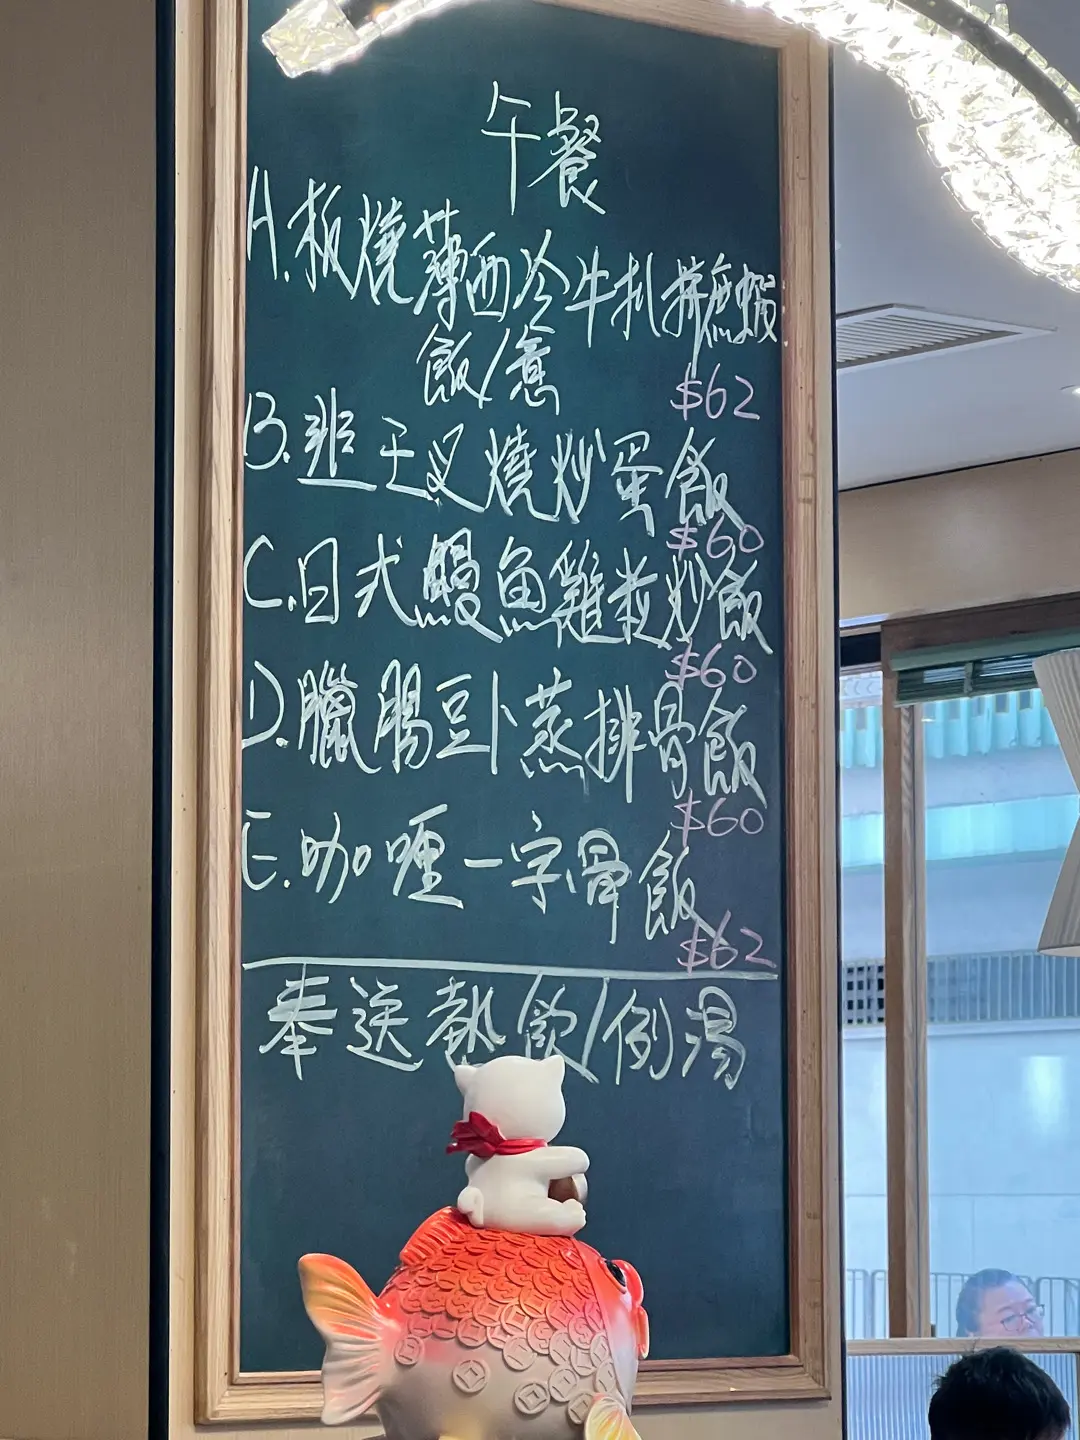 午餐
A.板燒薄西冷牛扒拼蔗蝦
飯/意
$62
B.韮王叉燒炒蛋飯
$60
C.日式鰻魚雞粒炒飯
$60
D.臘腸豆卜蒸排骨飯
$60
E.咖喱一字骨飯
$62
奉送熱飲/例湯